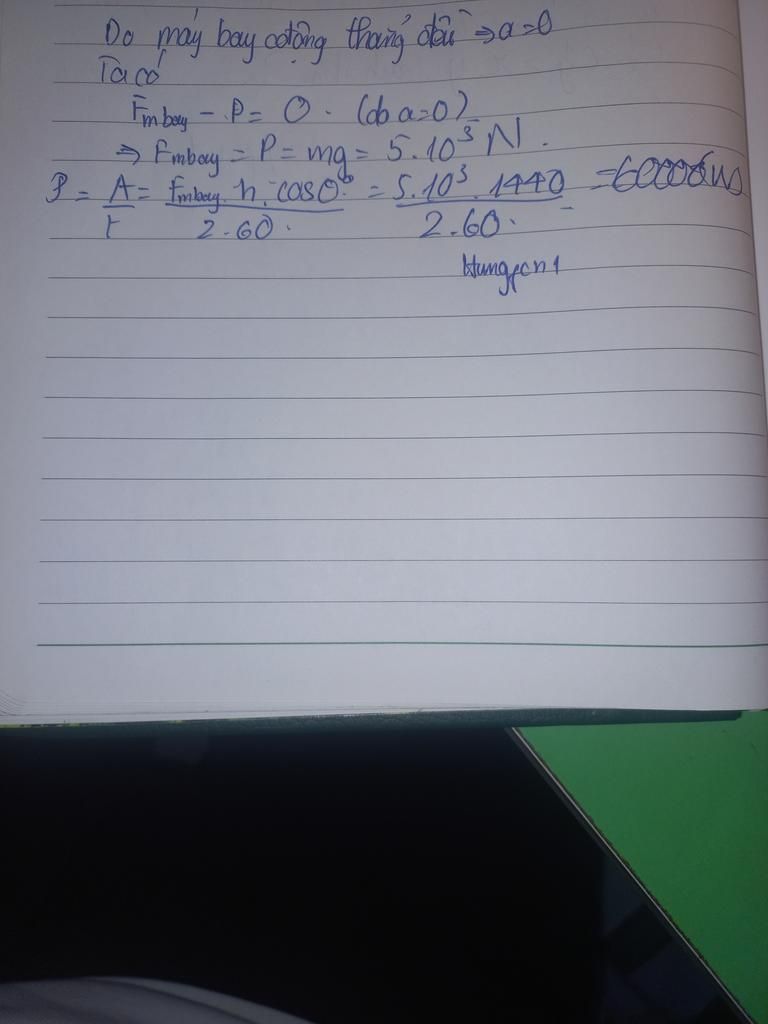 Do máy bay cđộng thẳng đều ⇒ a=0
Ta có
Fmbay - P = 0. (do a=0)
⇒ Fmbay = P = mg = 5.10³ N.
P = A/t = Fmbay.h.cos0°/2.60. = 5.10³.1440/2.60. =